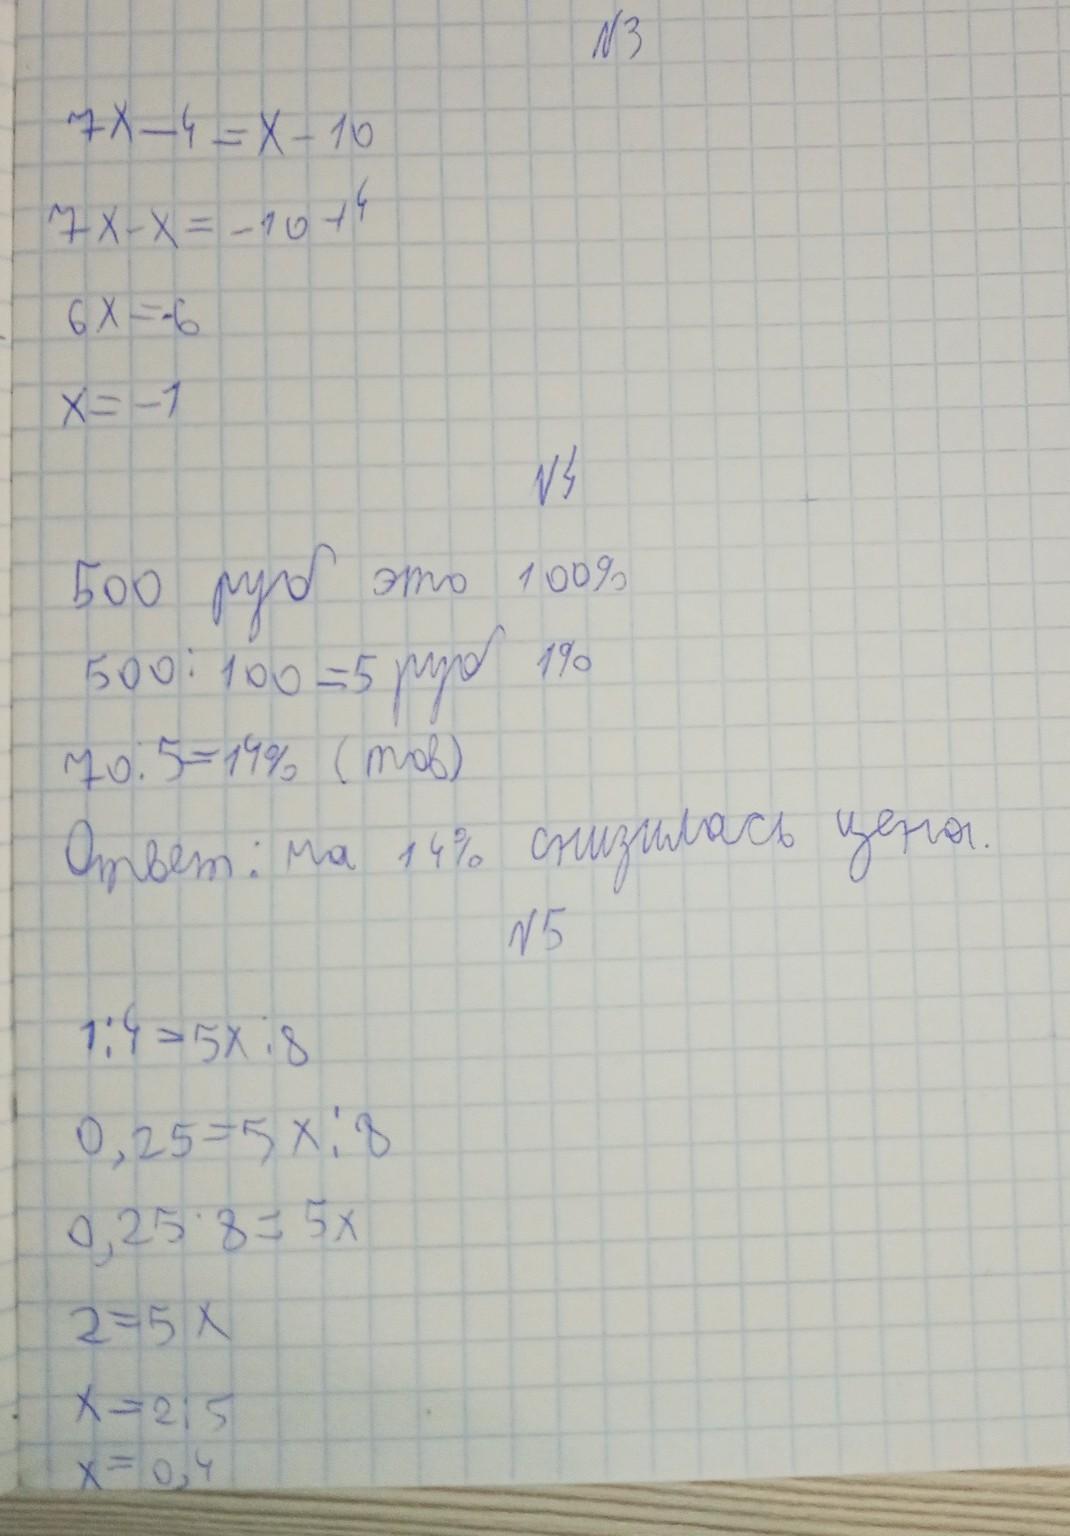 №3
7x-4=x-10
7x-x=-10+4
6x=-6
x=-1
№4
500 руб это 100%
500:100=5 руб 1%
70:5=14% (тов)
Ответ: на 14% снизилась цена.
№5
1:4=5x:8
0,25=5x:8
0,25·8=5x
2=5x
x=2:5
x=0,4